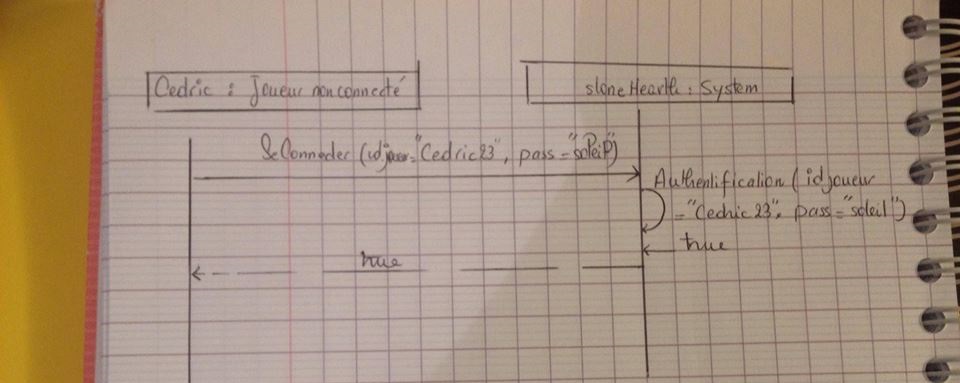 Cedric : Joueur non connecté
stoneHearth : System
SeConnecter (idjoueur="Cedric23", pass="soleil")
Authentification (idjoueur
="Cedric23", pass="soleil")
true
true